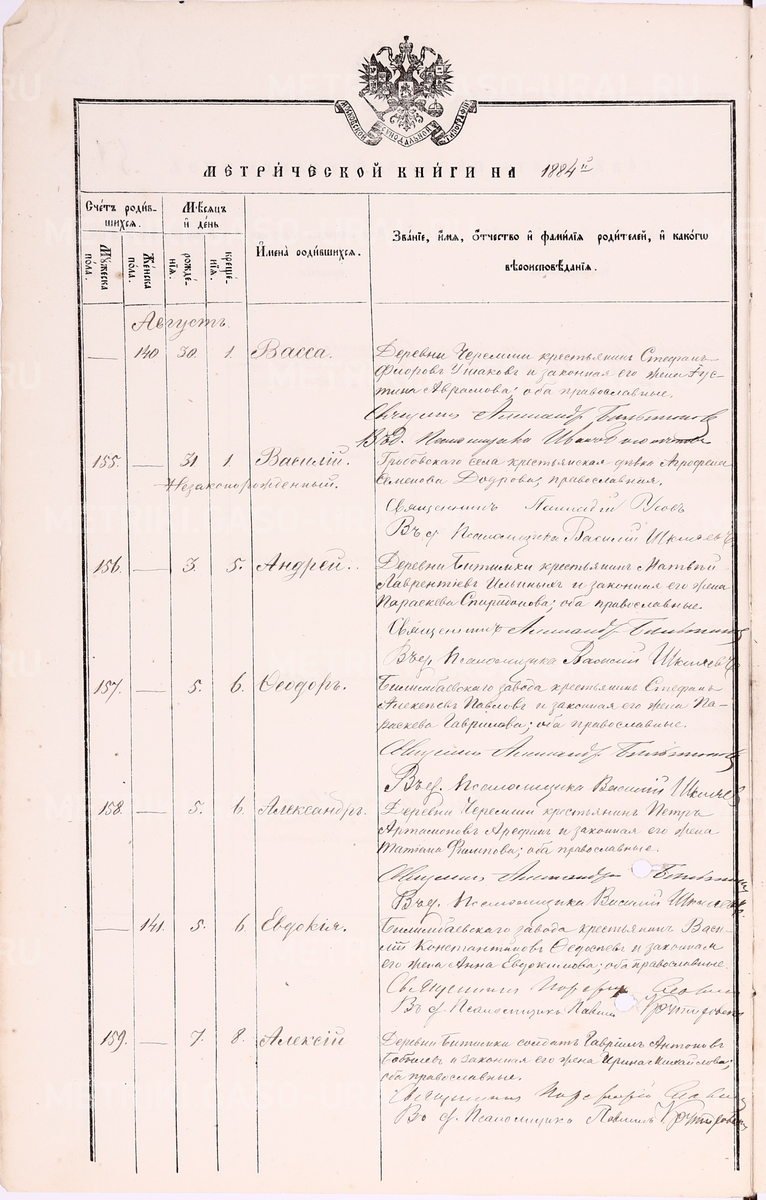 МОСКОВСКОЙ СѴНОДАЛЬНОЙ ТИПОГРАФІИ
МЕТРИ́ЧЕСКОЙ КНИ́ГИ НА 1884 й
Сче́тъ роди́вшихся. Мѣ́сяцъ и҆ де́нь И҆мена̀ роди́вшихся. Зва́ніе, и҆́мя, ѻ҆́тчество и҆ фами́лія роди́телей, и҆ како́гѡ вѣроисповѣ́данія.
Мꙋ́жеска по́ла. Же́нска по́ла. рожде́нія. креще́нія.
Августъ.
— 140 30. 1. Васса. Деревни Черемши крестьянинъ Стефанъ
Флоровъ Ушаковъ и законная его жена Густина
Аврамова; оба православные.
Священникъ Александръ
И. д. Псаломщика Иванъ
155. — 31 1. Василій. Гробовскаго села крестьянская дѣвка Агрофена
Незаконорожденный. Семенова Додрова; православная.
Священникъ Геннадій Русовъ
Въ д. Псаломщика Василій Шкляевъ
156. — 3 5. Андрей. Деревни Битимки крестьянинъ Матвѣй
Лаврентіевъ Ильиныхъ и законная его жена
Параскева Спиридонова; оба православные.
Священникъ Александръ
Въ д. Псаломщика Василій Шкляевъ
157. — 5. 6. Ѳеодоръ. Билимбаевскаго завода крестьянинъ Стефанъ
Алексѣевъ Павловъ и законная его жена Па-
раскева Гаврилова; оба православные.
Священникъ Александръ
Въ д. Псаломщика Василій Шкляевъ
158. — 5. 6. Александръ. Деревни Черемши крестьянинъ Петръ
Артамоновъ Арефинъ и законная его жена
Татіана Филипова; оба православные.
Священникъ Александръ
Въ д. Псаломщика Василій Шкляевъ
— 141. 5. 6 Евдокія. Билимбаевскаго завода крестьянинъ Васи-
лій Константиновъ Ѳедосѣевъ и законная
его жена Анна Евдокимова; оба православные.
Священникъ Порфирій Словцовъ
Въ д. Псаломщика Павелъ
159. — 7. 8. Алексій Деревни Битимки солдатъ Гавріилъ Антоновъ
и законная его жена Ирина Михайлова;
оба православные.
Священникъ Порфирій Словцовъ
Въ д. Псаломщика Павелъ